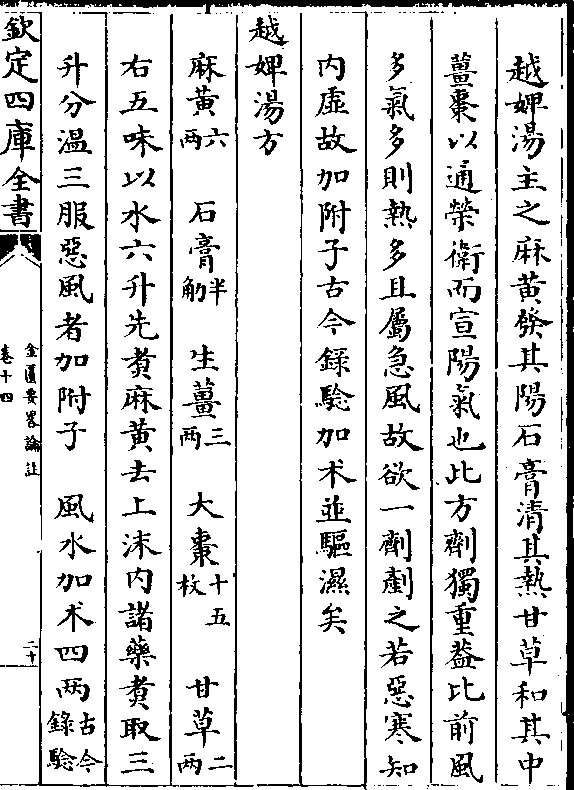 越婢湯主之麻黄發其陽石膏清其熱甘草和其中
薑棗以通榮衛而宣陽氣也此方劑獨重葢比前風
多氣多則熱多且屬急風故欲一劑劃之若惡寒知
内虛故加附子古今録驗加术並驅濕矣
越婢湯方
麻黄六兩 石膏半觔 生薑三兩 大棗十五枚 甘草二兩
右五味以水六升先煑麻黄去上沫内諸藥煑取三
升分温三服惡風者加附子 風水加术四两古今録驗
欽定四庫全書
金匱要畧論註
卷十四
二十